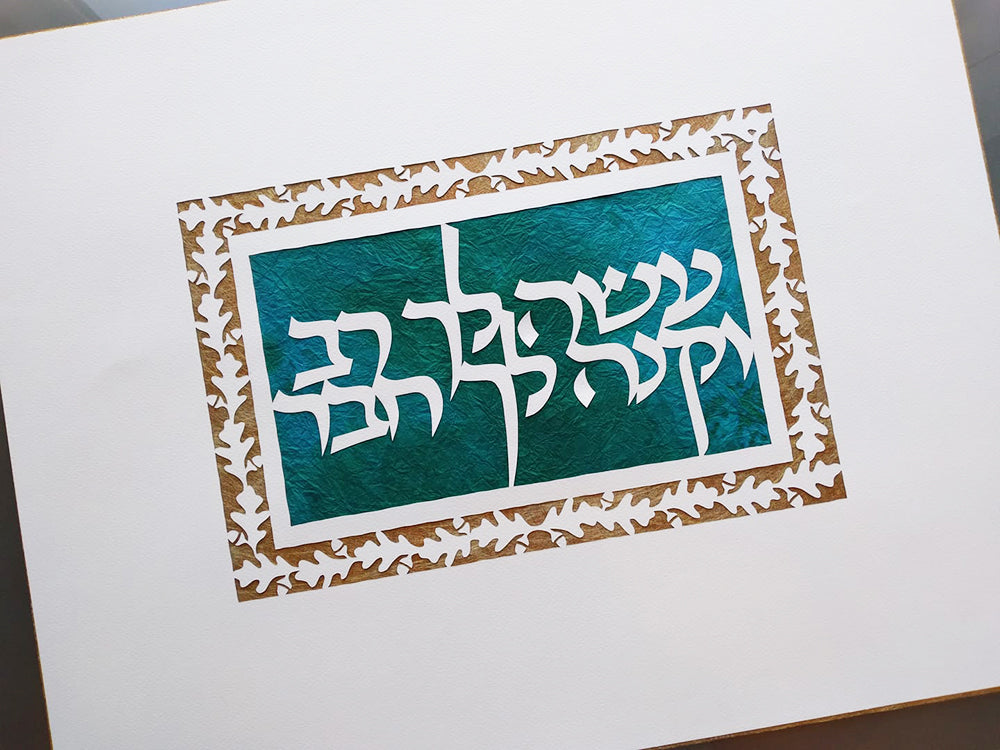 עשה לך רב
וקנה לך חבר